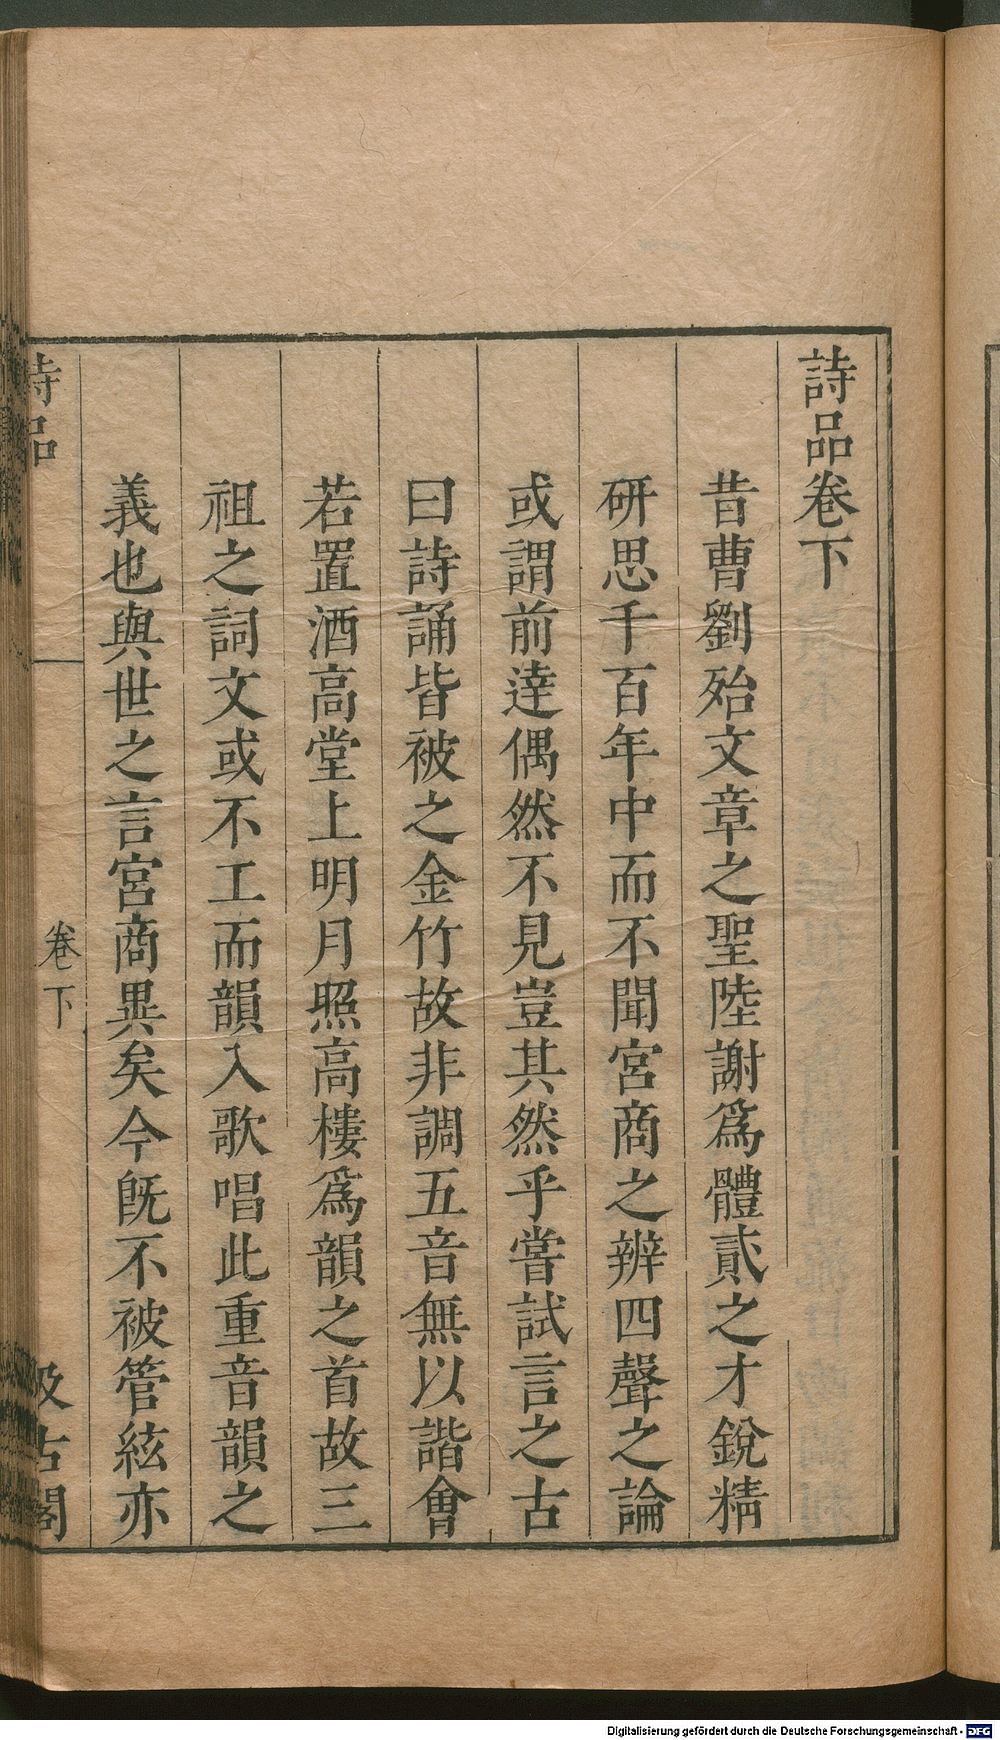 詩品卷下
昔曹劉殆文章之聖陸謝爲體貳之才銳精
研思千百年中而不聞宮商之辨四聲之論
或謂前達偶然不見豈其然乎嘗試言之古
曰詩誦皆被之金竹故非調五音無以諧會
若置酒高堂上明月照高樓爲韻之首故三
祖之詞文或不工而韻入歌唱此重音韻之
義也與世之言宮商異矣今旣不被管絃亦
詩品
卷下
汲古閣
Digitalisierung gefördert durch die Deutsche Forschungsgemeinschaft - DFG